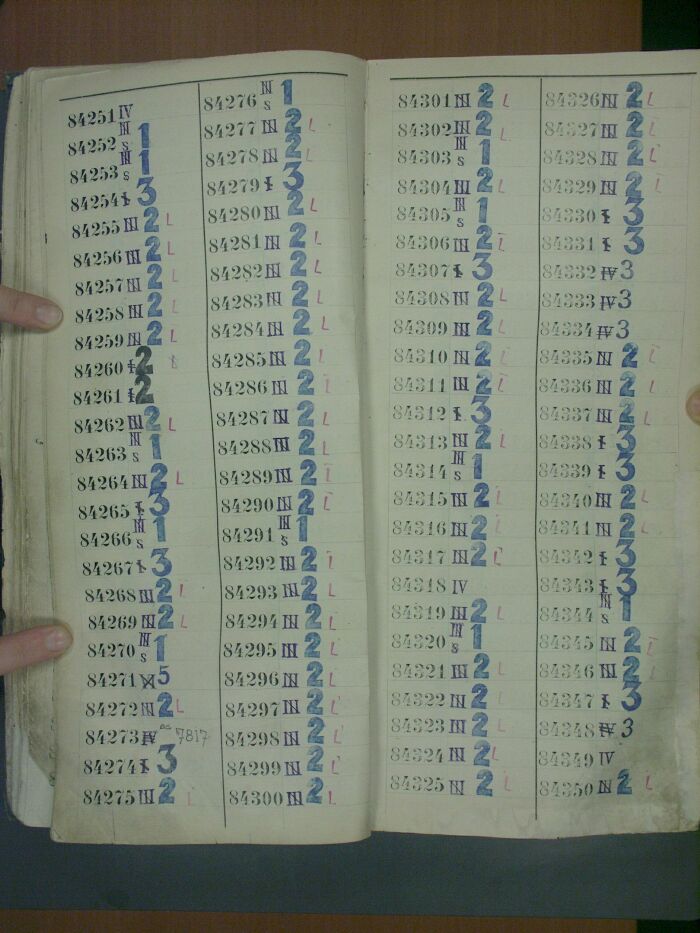 84251 IV
84252 III S 1
84253 III S 1
84254 I 3
84255 III 2 L
84256 III 2 L
84257 III 2 L
84258 III 2 L
84259 III 2 L
84260 I 2
84261 I 2
84262 III 2 L
84263 III S 1
84264 III 2 L
84265 I 3
84266 III S 1
84267 I 3
84268 III 2 L
84269 III 2 L
84270 III S 1
84271 VI 5
84272 III 2 L
84273 IV 7817
84274 I 3
84275 III 2 L
84276 III S 1
84277 III 2 L
84278 III 2 L
84279 I 3
84280 III 2 L
84281 III 2 L
84282 III 2 L
84283 III 2 L
84284 III 2 L
84285 III 2 L
84286 III 2 L
84287 III 2 L
84288 III 2 L
84289 III 2 L
84290 III 2 L
84291 III S 1
84292 III 2 L
84293 III 2 L
84294 III 2 L
84295 III 2 L
84296 III 2 L
84297 III 2 L
84298 III 2 L
84299 III 2 L
84300 III 2 L
84301 III 2 L
84302 III 2 L
84303 III S 1
84304 III 2 L
84305 III S 1
84306 III 2 L
84307 I 3
84308 III 2 L
84309 III 2 L
84310 III 2 L
84311 III 2 L
84312 I 3
84313 III 2 L
84314 III S 1
84315 III 2 L
84316 III 2 L
84317 III 2 L
84318 IV
84319 III 2 L
84320 III S 1
84321 III 2 L
84322 III 2 L
84323 III 2 L
84324 III 2 L
84325 III 2 L
84326 III 2 L
84327 III 2 L
84328 III 2 L
84329 III 2 L
84330 I 3
84331 I 3
84332 IV 3
84333 IV 3
84334 IV 3
84335 III 2 L
84336 III 2 L
84337 III 2 L
84338 I 3
84339 I 3
84340 III 2 L
84341 III 2 L
84342 I 3
84343 I 3
84344 III S 1
84345 III 2 L
84346 III 2 L
84347 I 3
84348 IV 3
84349 IV
84350 III 2 L